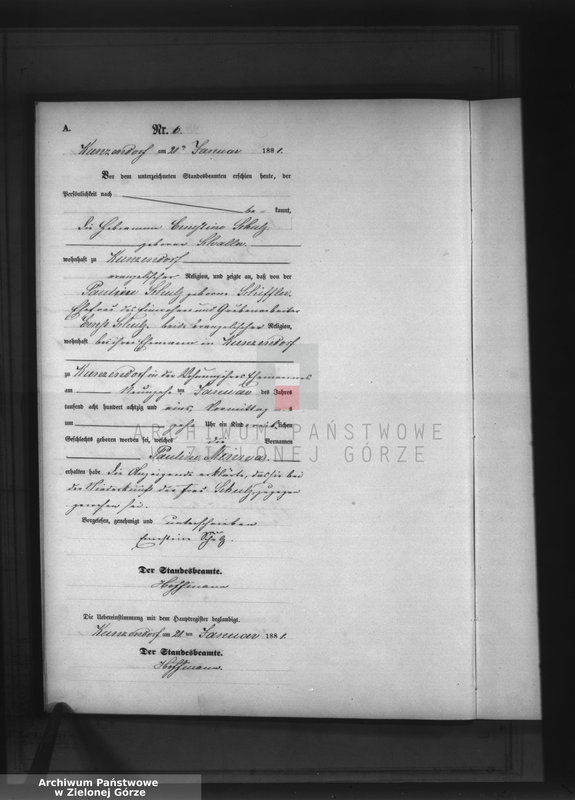 A. Nr. 6.
Kunzendorf am 20ten Januar 1881.
Vor dem unterzeichneten Standesbeamten erschien heute, der
Persönlichkeit nach
be- kannt,
die Hebamme Ernestine Schulz
geborene
wohnhaft zu Kunzendorf
evangelischer Religion, und zeigte an, daß von der
Pauline Schulz geborene
Ehefrau des Einwohner und Grubenarbeiter
Ernst Schulz, beide evangelischer Religion,
wohnhaft bei ihrem Ehemann in Kunzendorf
zu Kunzendorf in der Wohnung ihres Ehemannes
am ten Januar des Jahres
tausend acht hundert achtzig und eins, Vormittag s
um Uhr ein Kind lichen
Geschlechts geboren worden sei, welches die Vornamen
Pauline
erhalten habe. Die Anzeigende erklärte, daß sie bei
der Niederkunft der Frau Schulz zugegen
gewesen sei.
Vorgelesen, genehmigt und unterschrieben
Ernestine Schulz.
Der Standesbeamte.
Hoffmann
Die Uebereinstimmung mit dem Hauptregister beglaubigt.
Kunzendorf am ten Januar 1881.
Der Standesbeamte.
Hoffmann.
ARCHIWUM PAŃSTWOWE
W ZIELONEJ GÓRZE
Archiwum Państwowe
w Zielonej Górze